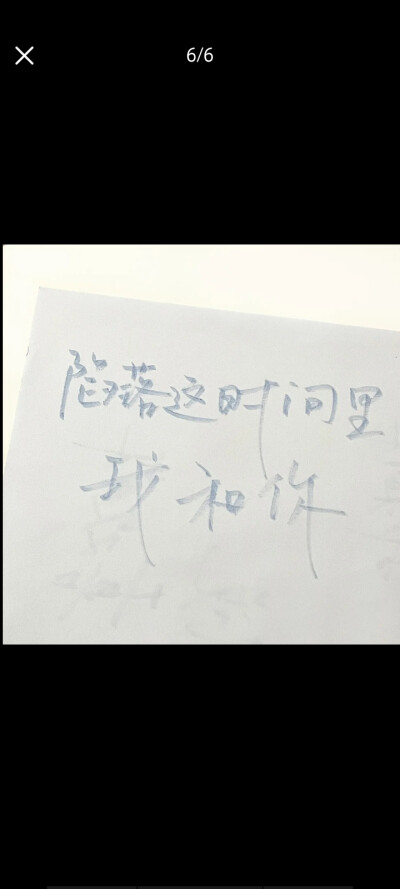 6/6
陷落这时间里
我和你